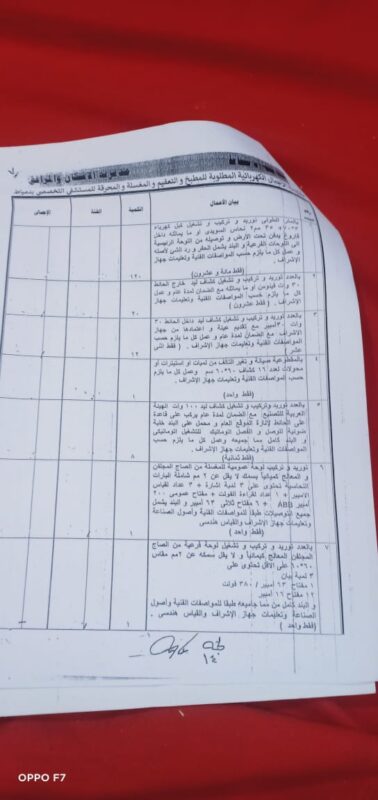 مديرية الاسكان والمرافق
الاعمال الكهربائية المطلوبة للمطبخ و التعقيم و المغسلة و المحرقة للمستشفى التخصصي بدمياط
بيان الأعمال
الكمية
الفئة
الاجمالى
بالمتر الطولى توريد و تركيب و تشغيل كبل كهرباء
نحاس السويدى او ما يماثله داخل
يدفن تحت الارض و توصيله من اللوحة الرئيسية
الى اللوحات الفرعية و البند يشمل الحفر و رد الشئ لأصله
و عمل كل ما يلزم حسب المواصفات الفنية وتعليمات جهاز
الإشراف.
(فقط مائة و عشرون)
١٢٠
٢
بالعدد توريد و تركيب و تشغيل كشاف ليد خارج الحائط
٣٠ وات فينوس او ما يماثله مع الضمان لمدة عام و عمل
كل ما يلزم حسب المواصفات الفنية وتعليمات جهاز
الإشراف. (فقط عشرون)
٢٠
٣
بالعدد توريد و تركيب و تشغيل كشاف ليد داخل الحائط ٣٠
وات مع تقديم عينة و اعتمادها من جهاز
الإشراف مع الضمان لمدة عام و عمل كل ما يلزم حسب
المواصفات الفنية وتعليمات جهاز الإشراف. (فقط اثنى
عشر)
١٢
٤
بالمقطوعية صيانة و تغير التالف من لمبات او استيترات او
محولات لعدد ١٦ كشاف ٦٠*٦٠ سم وعمل كل ما يلزم
حسب المواصفات الفنية وتعليمات جهاز الإشراف.
(فقط واحد)
١
٥
بالعدد توريد وتركيب و تشغيل كشاف ليد ١٠٠ وات الهيئة
العربية للتصنيع مع الضمان لمدة عام يركب على قاعدة
على الحائط لإنارة الموقع العام و محمل على البند خلية
ضوئية للوصل و الفصل الاوتوماتيك للتشغيل
و البند كامل مما جميعه وعمل كل ما يلزم حسب
المواصفات الفنية وتعليمات جهاز الإشراف
(فقط ثمانية)
٨
٦
توريد و تركيب لوحة عمومية للمغسلة من الصاج المجلفن
و المعالج كميائياً بسمك لا يقل عن ٢ مم شاملة البارات
النحاسية تحتوى على ٣ لمبة اشارة + ٣ عداد لقياس
الامبير + ١ عداد لقراءة الفولت + مفتاح عمومى ٢٠٠
امبير ABB + ٦ مفتاح ثلاثى ٦٣ امبير و البند يشمل
جميع التوصيلات طبقا للمواصفات الفنية وأصول الصناعة
وتعليمات جهاز الإشراف والقياس هندسى
(فقط واحد)
١
٧
بالعدد توريد و تركيب و تشغيل لوحة فرعية من الصاج
المجلفن المعالج كيميائياً و لا يقل سمكه عن ٢مم مقاس
على الاقل تحتوى على
٣ لمبة بيان
١ مفتاح ٦٣ امبير / ٣٨٠ فولت
١٢ مفتاح ١٦ أمبير
و البند كامل من مما جميعه طبقا للمواصفات الفنية وأصول
الصناعة وتعليمات جهاز الإشراف والقياس هندسى.
(فقط واحد)
١
OPPO F7